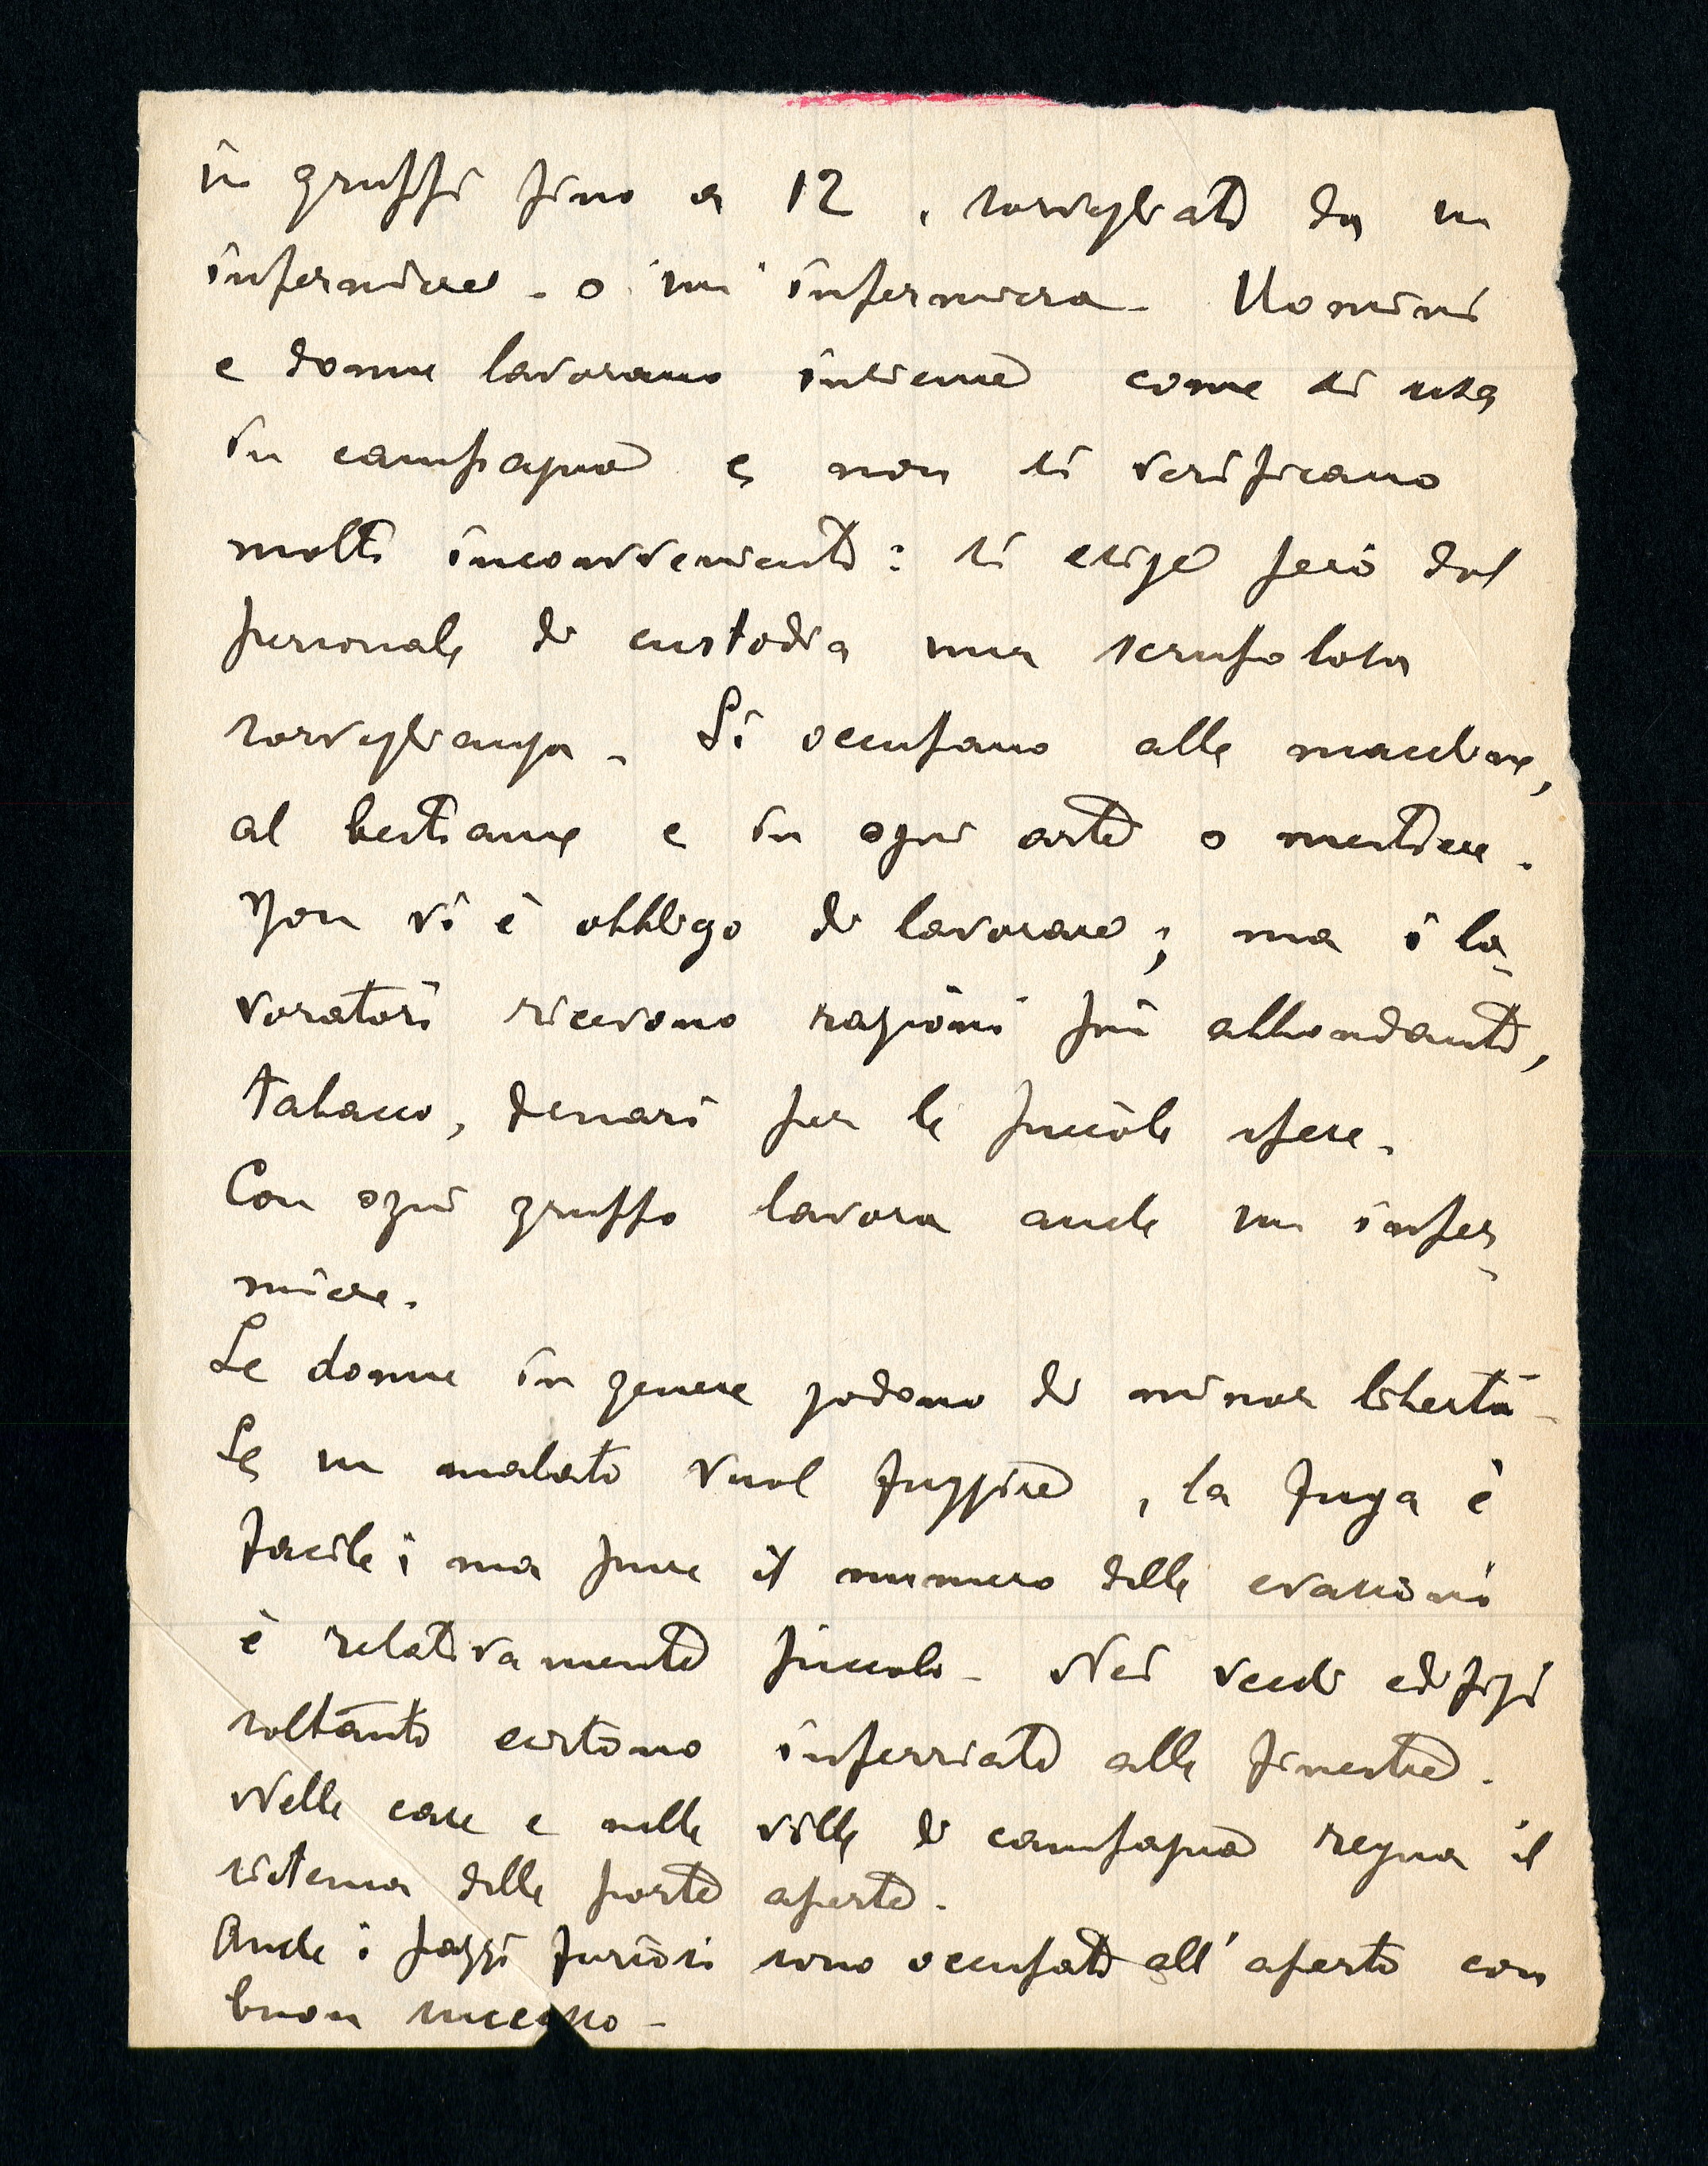 in gruppi fino a 12, sorvegliati da un
infermiere o un'infermiera. Uomini
e donne lavorano insieme come si usa
in campagna e non si verificano
molti inconvenienti: si esige però dal
personale di custodia una scrupolosa
sorveglianza. Si occupano alle macchine,
al bestiame e in ogni arte o mestiere.
Non vi è obbligo di lavorare; ma i la-
voratori ricevono razioni più abbondanti,
tabacco, denari per le piccole spese.
Con ogni gruppo lavora anche un infer-
miere.
Le donne in genere godono di minor libertà.
Se un malato vuol fuggire, la fuga è
facile; ma pure il numero delle evasioni
è relativamente piccolo. Nei vecchi edifizi
soltanto esistono inferriate alle finestre.
Nelle case e nelle ville di campagna regna il
sistema delle porte aperte.
Anche i pazzi furiosi sono occupati all'aperto con
buon successo.